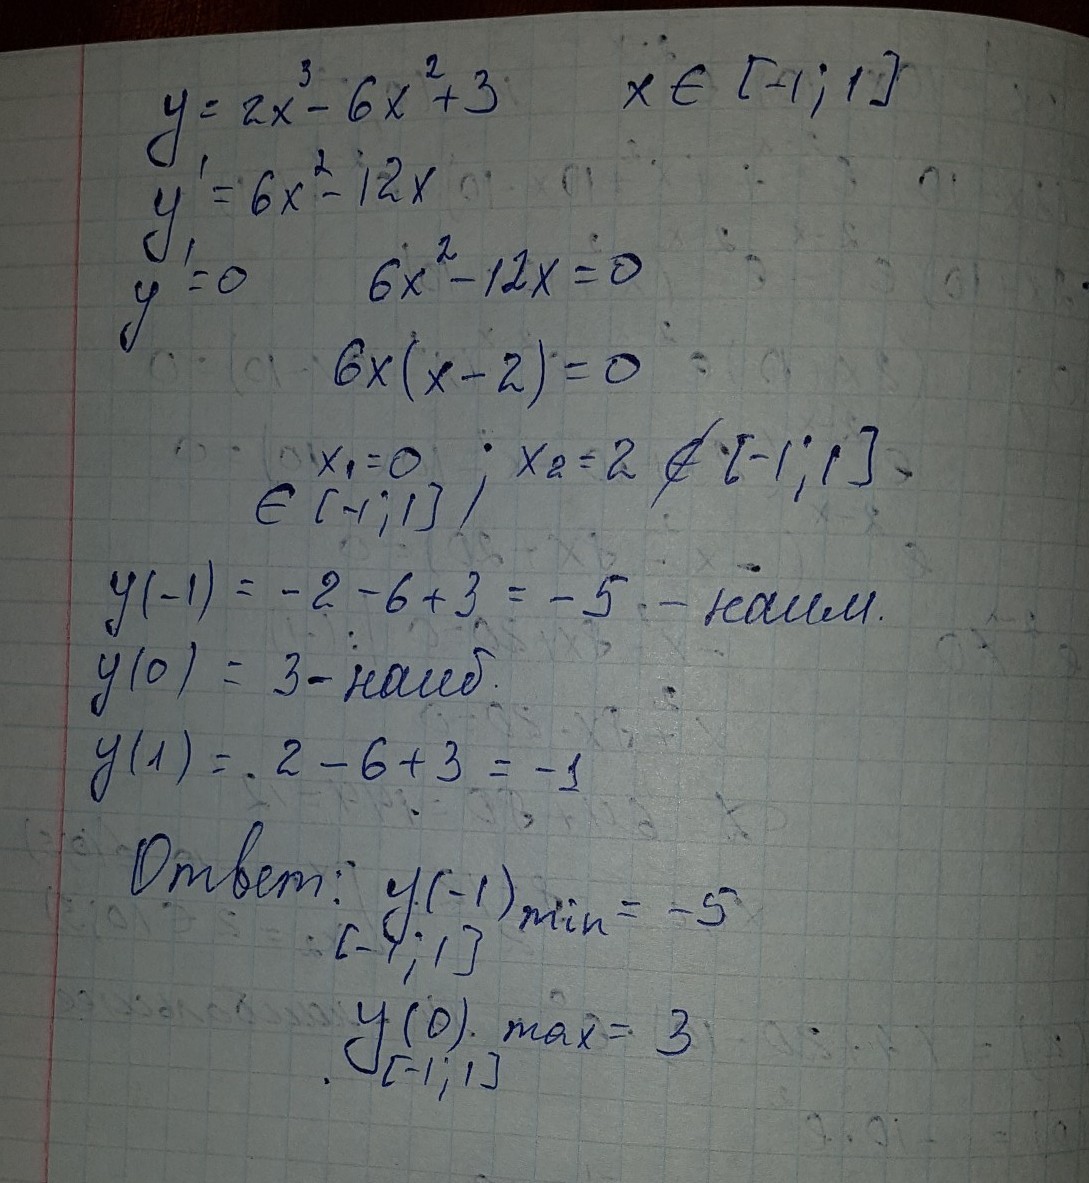 y = 2x³ - 6x² + 3 x ∈ [-1; 1]
y' = 6x² - 12x
y' = 0 6x² - 12x = 0
6x(x - 2) = 0
x₁ = 0 ; x₂ = 2 ∉ [-1; 1]
∈ [-1; 1]
y(-1) = -2 - 6 + 3 = -5 - наим.
y(0) = 3 - наиб.
y(1) = 2 - 6 + 3 = -1
Ответ: y(-1) min = -5
[-1; 1]
y(0) max = 3
[-1; 1]